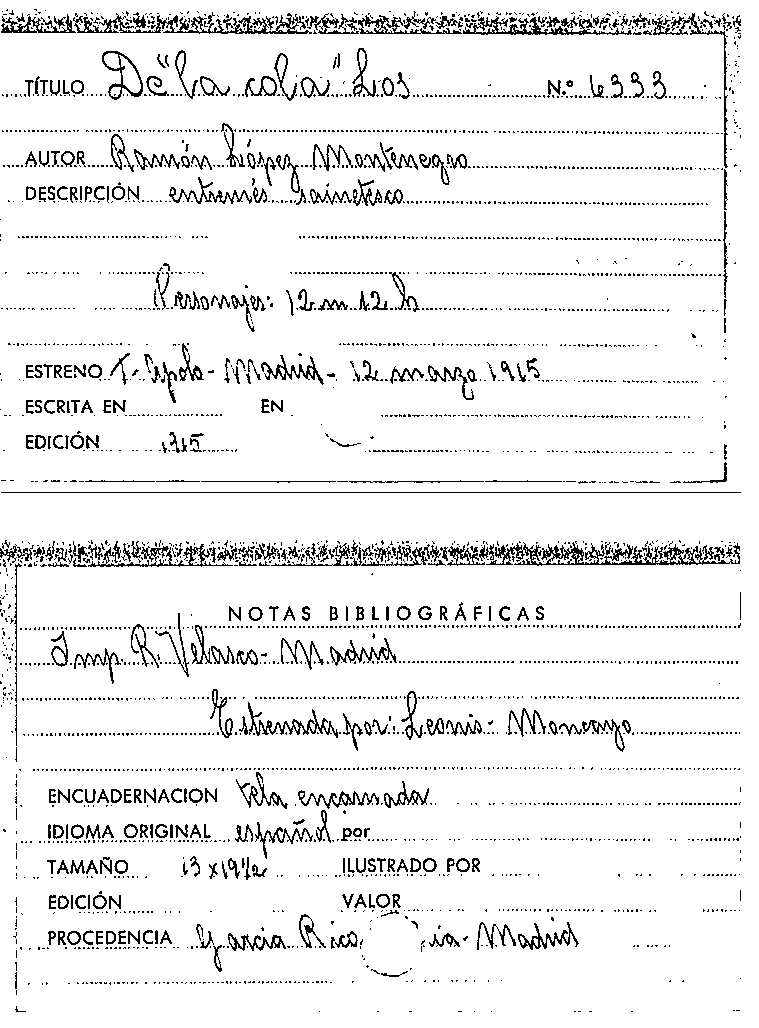 TÍTULO De "la cola" Los N.º 6333
AUTOR Ramón López Montenegro
DESCRIPCIÓN entremés sainetesco
Personajes: 12 m 12 h
ESTRENO T. Apolo - Madrid - 12 marzo 1915
ESCRITA EN EN
EDICIÓN 1915
NOTAS BIBLIOGRÁFICAS
Imp. R. Velasco - Madrid
Estrenada por: Leonis - Moncayo
ENCUADERNACION tela encarnada
IDIOMA ORIGINAL español por
TAMAÑO 13 x 19 1/2 ILUSTRADO POR
EDICIÓN VALOR
PROCEDENCIA García Rico Madrid